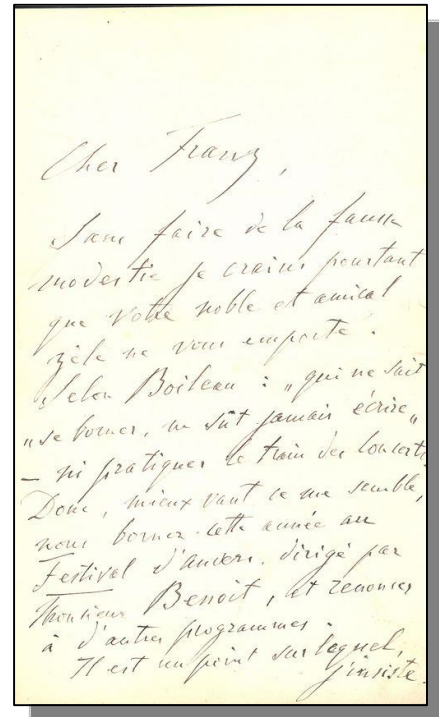 Cher Franz,
Sans faire de la fausse
modestie je crains pourtant
que votre noble et amical
zèle ne vous emporte.
Selon Boileau : „qui ne sait
„se borner, ne sût jamais écrire„
– ni pratiquer le train des concerts.
Donc, mieux vaut ce me semble,
nous borner cette année au
Festival d'Anvers, dirigé par
Monsieur Benoît, et renoncer
à d'autres programmes.
Il est un point sur lequel,
j'insiste.